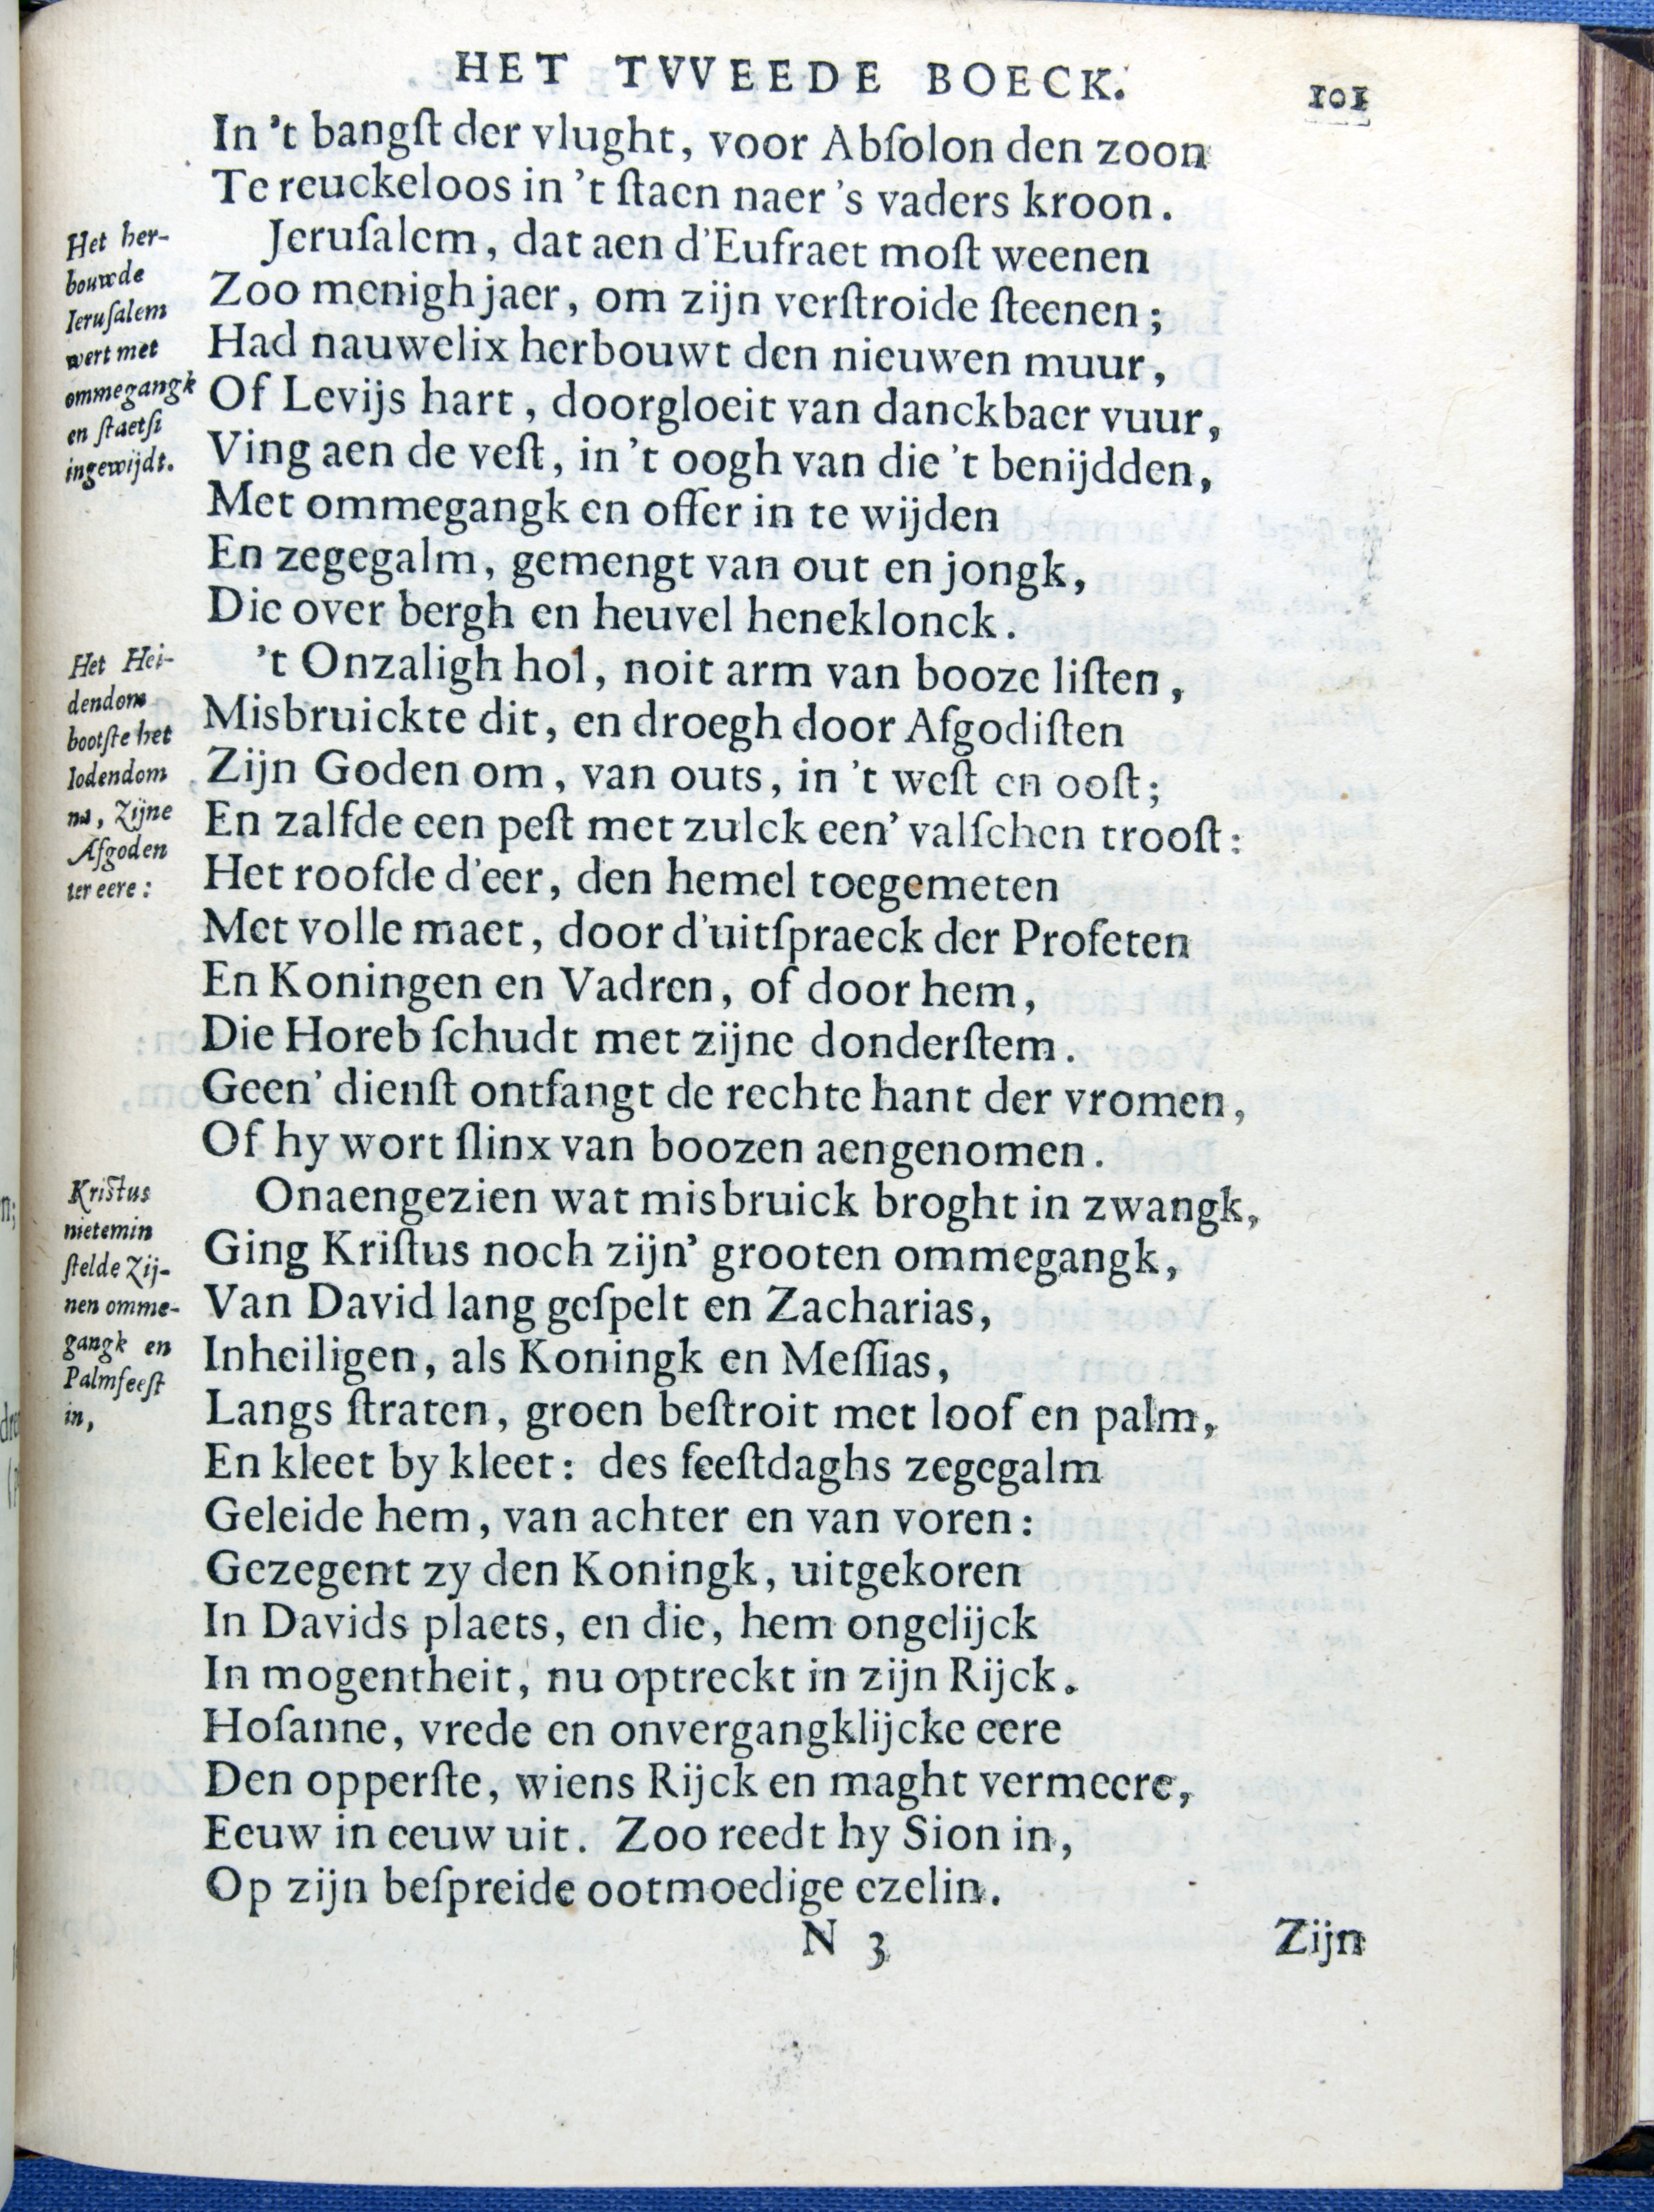 HET TVVEEDE BOECK.
101
In 't bangſt der vlught, voor Abſolon den zoon
Te reuckeloos in 't ſtaen naer 's vaders kroon.
Het her-
bouwde
Ieruſalem
wert met
ommegangk
en ſtaetſi
ingewijdt.
Jeruſalem, dat aen d'Eufraet moſt weenen
Zoo menigh jaer, om zijn verſtroide ſteenen;
Had nauwelix herbouwt den nieuwen muur,
Of Levijs hart, doorgloeit van danckbaer vuur,
Ving aen de veſt, in 't oogh van die 't benijdden,
Met ommegangk en offer in te wijden
En zegegalm, gemengt van out en jongk,
Die over bergh en heuvel heneklonck.
Het Hei-
dendom
bootſte het
Iodendom
na, Zijne
Afgoden
ter eere:
't Onzaligh hol, noit arm van booze liſten,
Misbruickte dit, en droegh door Afgodiſten
Zijn Goden om, van outs, in 't weſt en ooſt;
En zalfde een peſt met zulck een' valſchen trooſt:
Het roofde d'eer, den hemel toegemeten
Met volle maet, door d'uitſpraeck der Profeten
En Koningen en Vadren, of door hem,
Die Horeb ſchudt met zijne donderſtem.
Geen' dienſt ontfangt de rechte hant der vromen,
Of hy wort ſlinx van boozen aengenomen.
Kriſtus
nietemin
ſtelde Zij-
nen omme-
gangk en
Palmfeeſt
in,
Onaengezien wat misbruick broght in zwangk,
Ging Kriſtus noch zijn' grooten ommegangk,
Van David lang geſpelt en Zacharias,
Inheiligen, als Koningk en Meſſias,
Langs ſtraten, groen beſtroit met loof en palm,
En kleet by kleet: des feeſtdaghs zegegalm
Geleide hem, van achter en van voren:
Gezegent zy den Koningk, uitgekoren
In Davids plaets, en die, hem ongelijck
In mogentheit, nu optreckt in zijn Rijck.
Hoſanne, vrede en onvergangklijcke eere
Den opperſte, wiens Rijck en maght vermeere,
Eeuw in eeuw uit. Zoo reedt hy Sion in,
Op zijn beſpreide ootmoedige ezelin.
N 3
Zijn